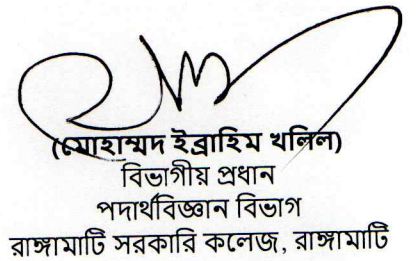 (মোহাম্মদ ইব্রাহিম খলিল)
বিভাগীয় প্রধান
পদার্থবিজ্ঞান বিভাগ
রাঙ্গামাটি সরকারি কলেজ, রাঙ্গামাটি